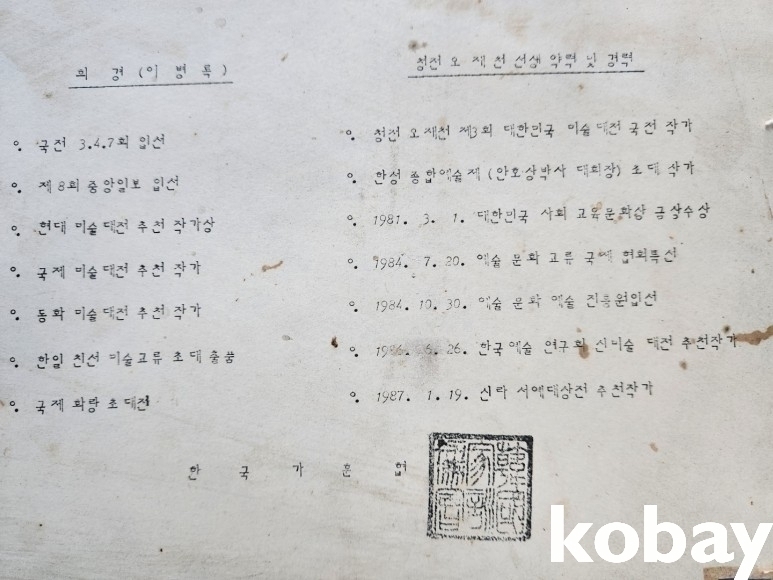 희 경 (이 병 록)
o. 국전 3.4.7회 입선
o. 제 8회 중앙일보 입선
o. 현대 미술대전 추천 작가상
o. 국제 미술대전 추천 작가
o. 동화 미술대전 추천 작가
o. 한일 친선 미술교류 초대 출품
o. 국제 화랑 초대전
청전 오 재 천 선생 약력 및 경력
o. 청전 오재천 제3회 대한민국 미술대전 국전 작가
o. 한성 종합예술제 (안호상박사 대회장) 초대 작가
o. 1981. 3. 1. 대한민국 사회 교육문화상 금상수상
o. 1984. 7. 20. 예술 문화 교류 국제 협회특선
o. 1984. 10. 30. 예술 문화 예술 진흥원입선
o. 6. 26. 한국예술 연구회 신미술 대전 추천작가
o. 1987. 1. 19. 신라 서예대상전 추천작가
한 국 가 훈 협
kobay